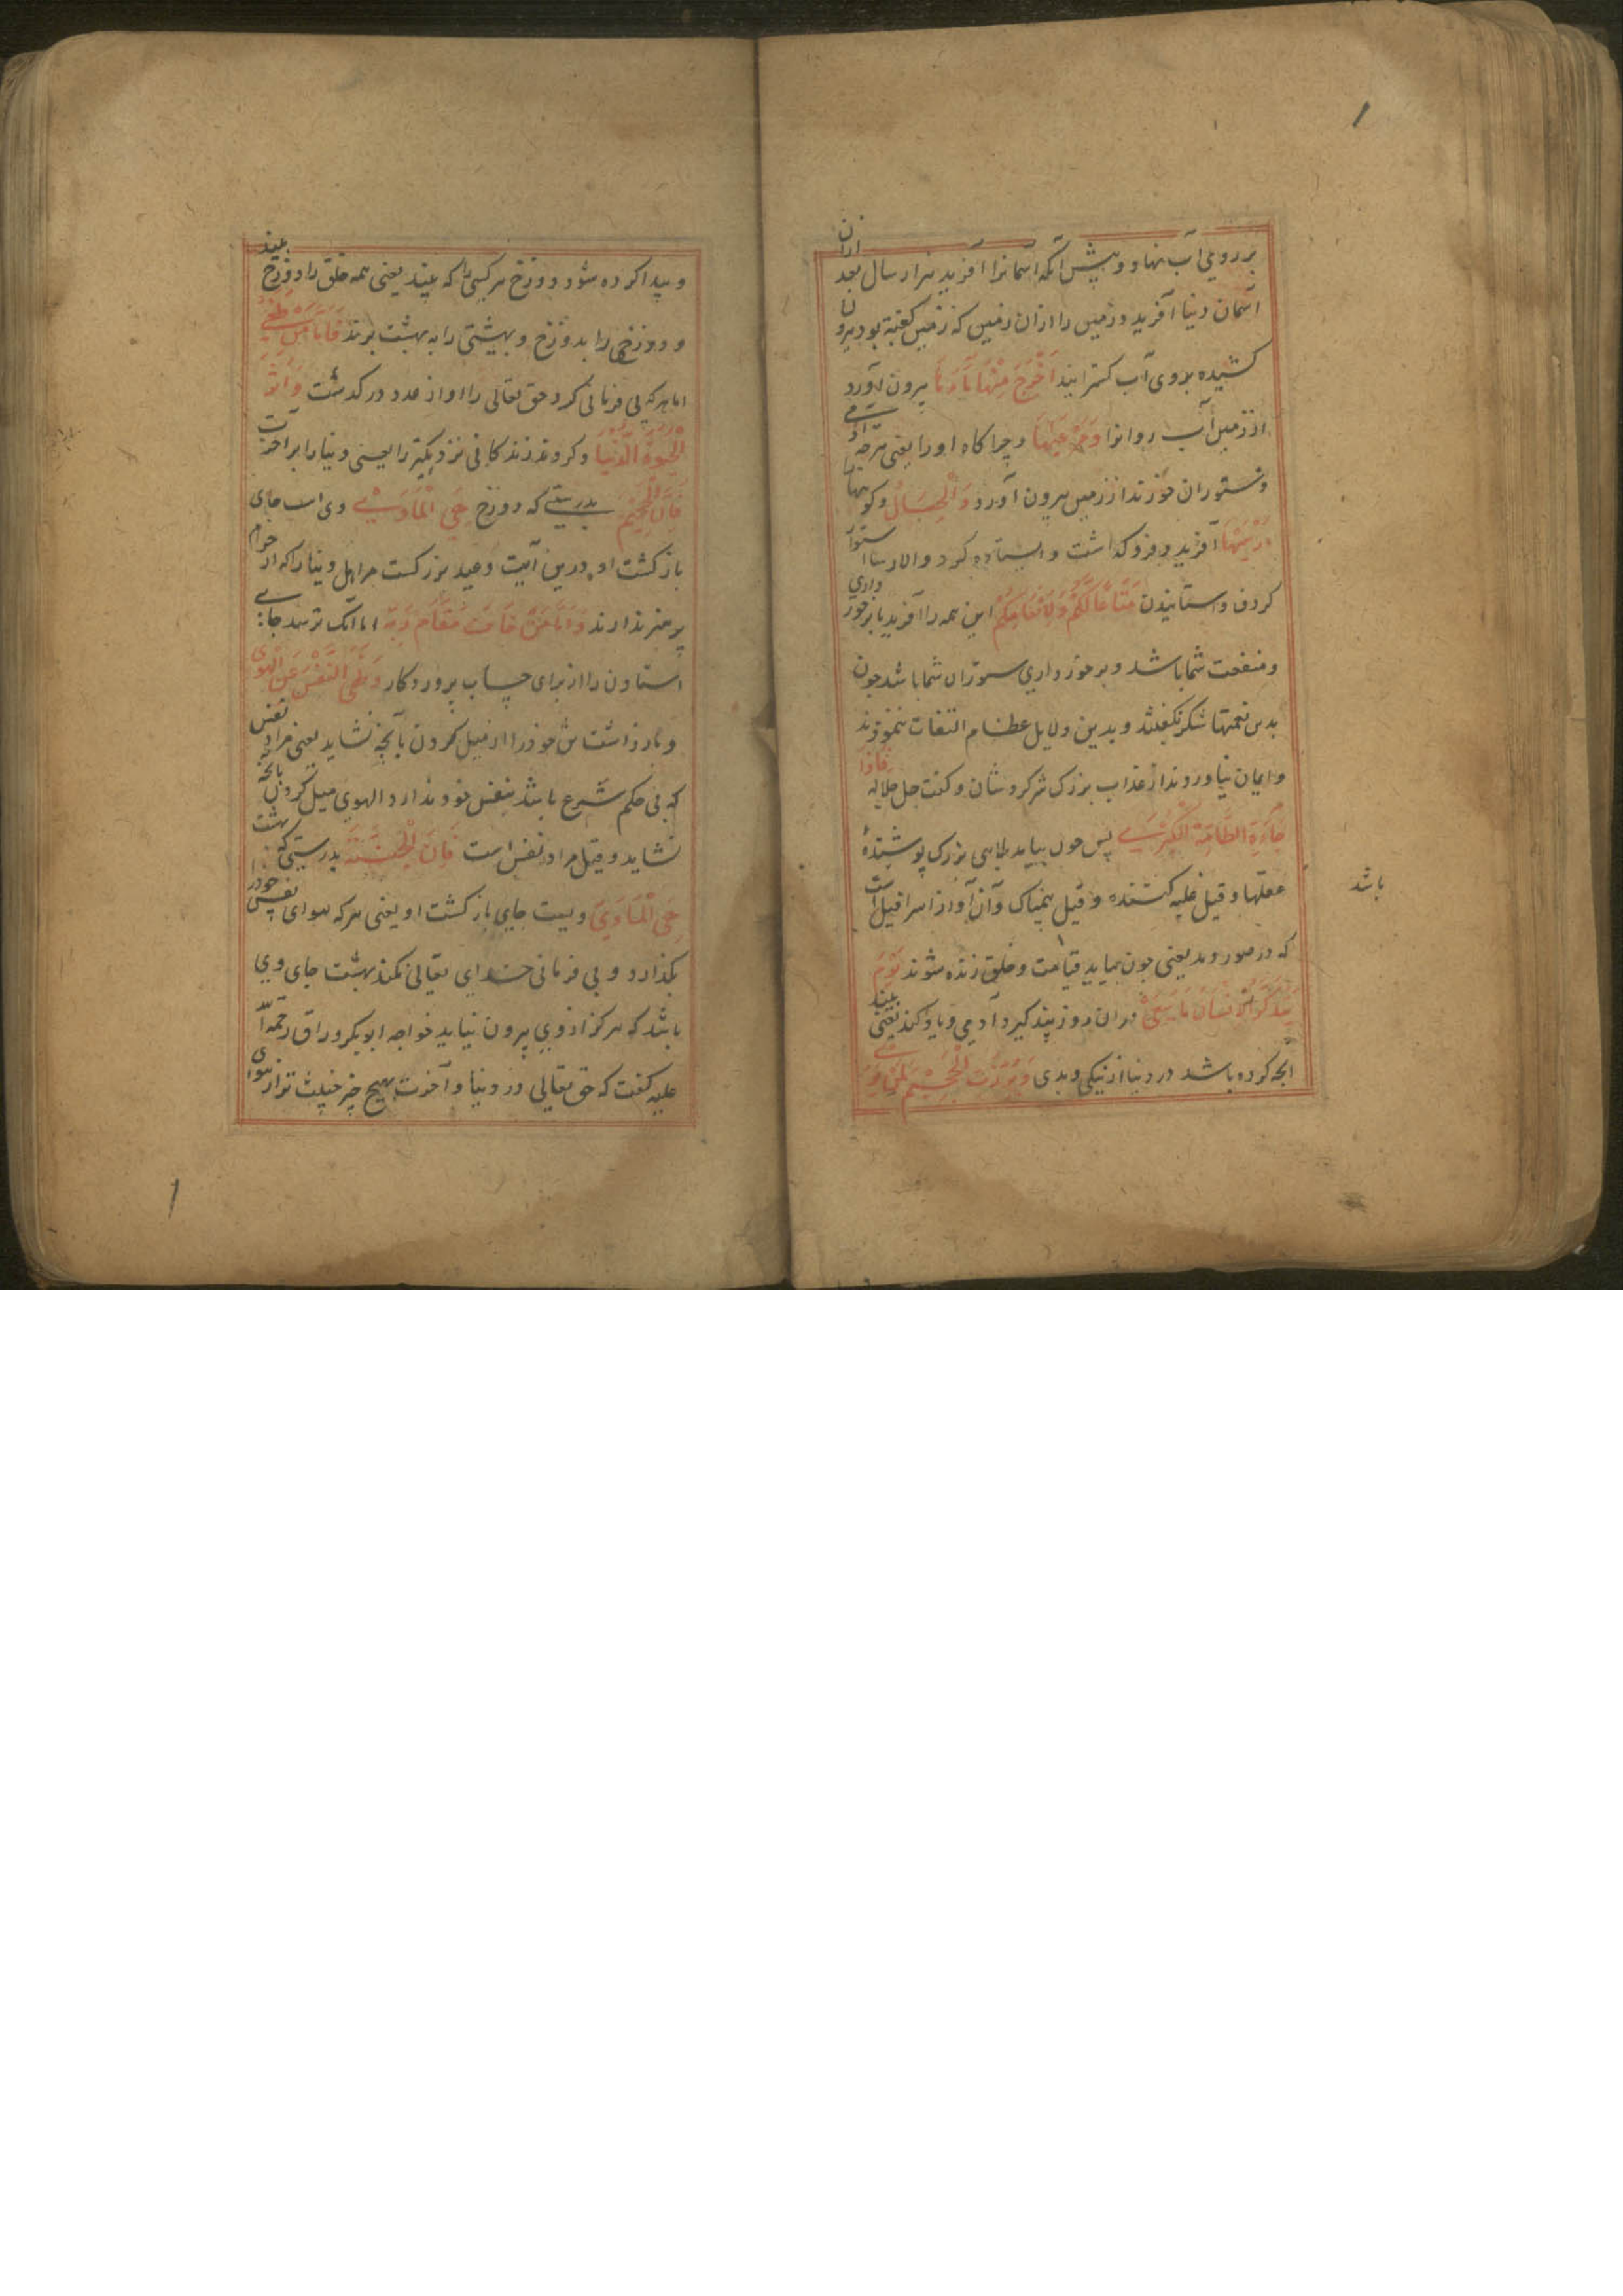 بر روی آب نهاد و پیش آنکه آسمانرا آفرید بهزار سال بعد ازان
آسمان دنیا آفرید و زمین را ازان زمین که زمین کعبة بود بیرون
کشیده بروی آب کسترانید اَخْرَجَ مِنْهَا مَآءَهَا بیرون آورد
از زمین آب روانرا وَمَرْعٰیهَا و چراکاه او را یعنی هرچه آدمی
و ستوران خورند از زمین بیرون آورد وَالْجِبَالَ و کوهها
اَرْسٰیهَا آفرید و فرو کذاشت و ایستاده کرد و الارسا استوار
کردن و استانیدن مَتَاعًا لَّکُمْ وَلِاَنْعَامِکُمْ این همه را آفرید تا برخورداری
و منفعت شما باشد و برخورداری ستوران شما باشد چون
بدین نعمتها شکر نکفتند و بدین دلایل عظام التفات ننمودند
و ایمان نیاوردند از عذاب بزرک شرکردشان و کفت جل جلاله فَاِذَا
جَآءَتِ الطَّآمَّةُ الْکُبْرٰی پس چون بیاید بلاهی بزرک پوشندهٔ
عقلها و قیل غلبه کننده و قیل سهمناک و آن آواز اسرافیل است
که در صور دمد یعنی چون بیاید قیامت و خلق زنده شوند یَوْمَ
یَتَذَکَّرُ الْاِنْسَانُ مَا سَعٰی دران روز پند کیرد آدمی و یاد کند یعنی بیند
آنچه کرده باشد در دنیا از نیکی و بدی وَبُرِّزَتِ الْجَحِیْمُ لِمَنْ یَّرٰی
باشد
و پیدا کرده شود دوزخ هر کسی را که بیند یعنی همه خلق را دوزخ بیند
و دوزخی را بدوزخ و بهشتی را به بهشت برند فَاَمَّا مَنْ طَغٰی
اما هر که بی فرمانی کرد حق تعالی را او از حد درکذشت وَاٰثَرَ
الْحَیٰوةَ الدُّنْیَا و کروید زندکانی نزدیکتر را یعنی دنیا را بر آخرت
فَاِنَّ الْجَحِیْمَ بدرستی که دوزخ هِیَ الْمَاْوٰی وی است جای
بازکشت او و درین آیت وعید بزرکست مر اهل دنیا را که از حرام
پرهیز ندارند وَاَمَّا مَنْ خَافَ مَقَامَ رَبِّهٖ اما آنک ترسد جای
استادن را از برای حساب پروردکار وَنَهَی النَّفْسَ عَنِ الْهَوٰی
و بازداشت تن خود را از میل کردن بآنچه نشاید یعنی مراد نفس
که بی حکم شرع باشد بنفس خود ندارد و الهوی میل کردن بآنچه
نشاید و قیل مراد نفس است فَاِنَّ الْجَنَّةَ بدرستی که بهشت
هِیَ الْمَاْوٰی ویست جای بازکشت او یعنی هر که هوای نفس خود
بکذارد و بی فرمانی خدای تعالی نکند بهشت جای وی
باشد که هرکز از وی بیرون نیاید خواجه ابوبکر وراق رحمة الله
علیه کفت که حق تعالی در دنیا و آخرت هیچ چیز خبیث تر از هوای